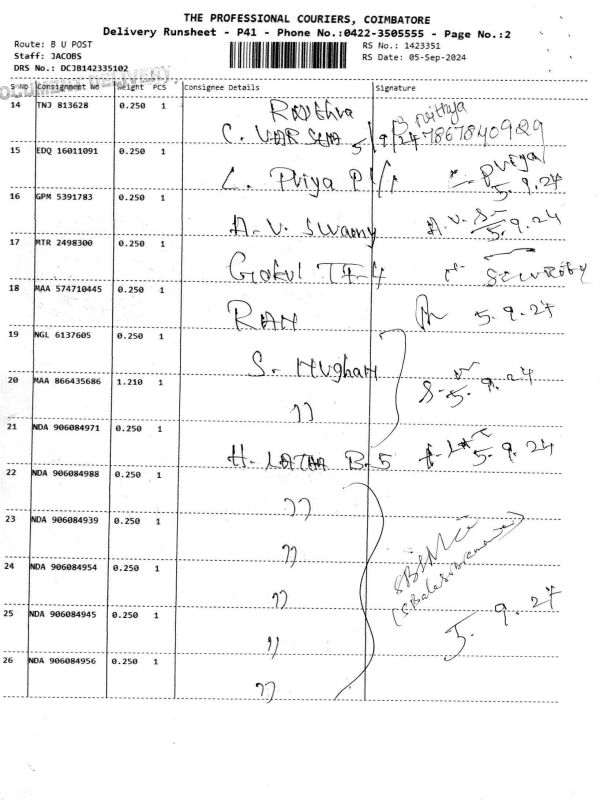 THE PROFESSIONAL COURIERS, COIMBATORE
Delivery Runsheet - P41 - Phone No.:0422-3505555 - Page No.:2
Route: B U POST
RS No.: 1423351
Staff: JACOBS
RS Date: 05-Sep-2024
DRS No.: DCJB142335102
S No Consignment No Weight PCS Consignee Details Signature
14 TNJ 813628 0.250 1
C. 5/9/24 7867840929
15 EDQ 16011091 0.250 1
L. Priya P 5.9.24
16 GPM 5391783 0.250 1
A.V. Swamy A.V. S 5.9.24
17 MTR 2498300 0.250 1
Gokul
18 MAA 574710445 0.250 1
RAM 5.9.24
19 NGL 6137605 0.250 1
S. 
20 MAA 866435686 1.210 1
" S. 5.9.24
21 NDA 906084971 0.250 1
H. LATHA B-5 5.9.24
22 NDA 906084988 0.250 1
"
23 NDA 906084939 0.250 1
"
24 NDA 906084954 0.250 1
"
25 NDA 906084945 0.250 1
" 5.9.24
26 NDA 906084956 0.250 1
"